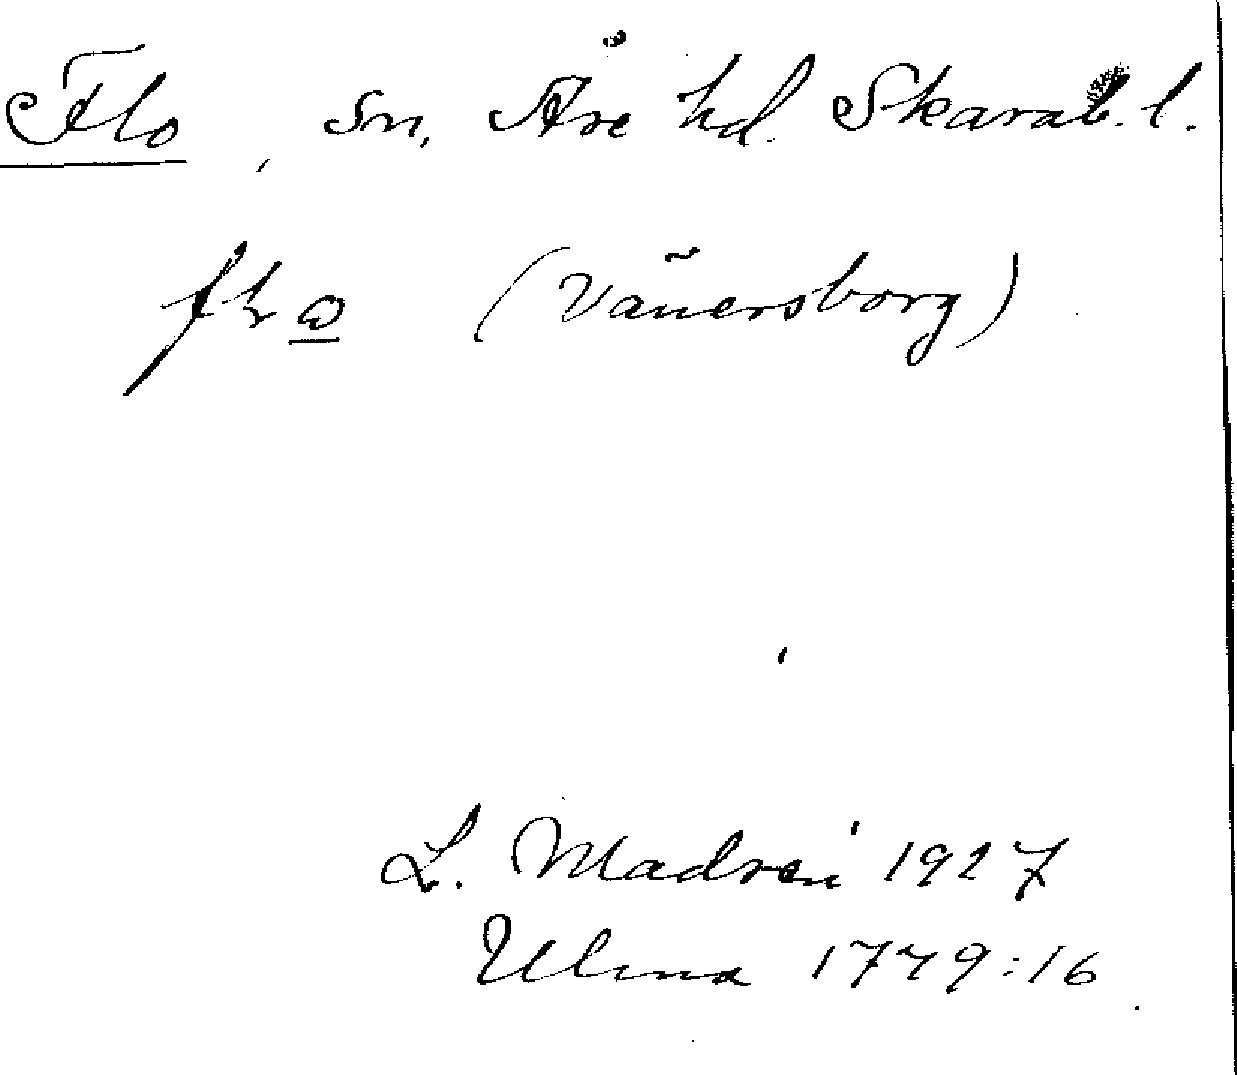 Flo, sn, Åse hd. Skarab. l.
(Vänersborg)
L. 1927
Ulma 1749:16